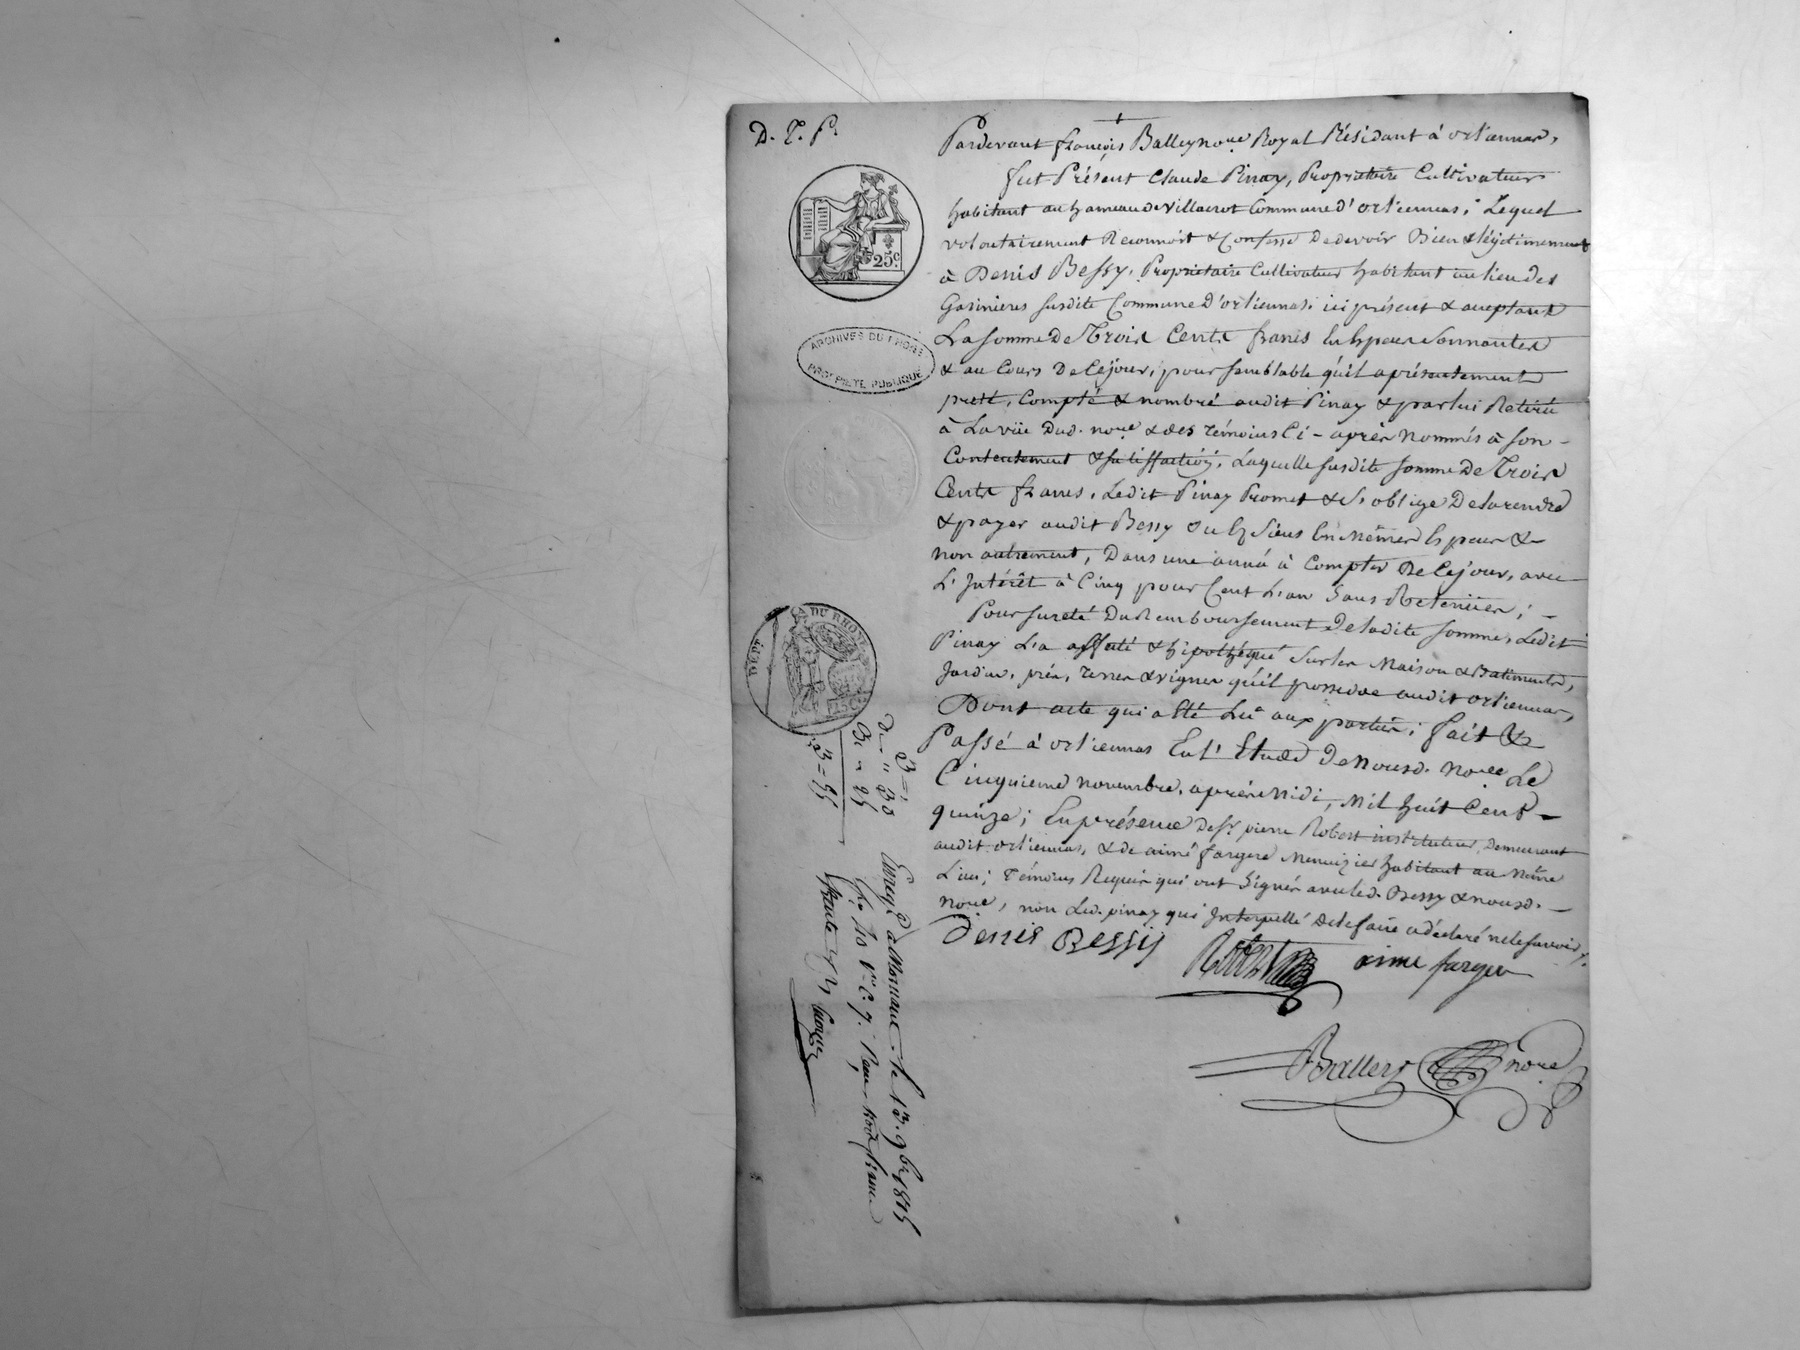 D. T. P.
Pardevant françois Balley nore Royal Résidant à orliennas,
fut Présent Claude Pinay, Propriétaire Cultivateur
habitant au hameau de Villacrot Commune d'orliennas; Lequel
volontairement Reconnoit & Confesse De devoir Bien & légitimement
à Denis Bessy, Propriétaire Cultivateur habitant au lieu des
Gasinières susdite Commune D'orliennas, ici présent & acceptant
La somme De Trois Cents francs En Espèces sonnantes
& au Cours De Cejour, pour semblable qu'il a présentement
preté, Compté & nombré audit Pinay & par lui Retirée
à La vüe dud. nore & des Témoins Ci-après Nommés à son
Contentement & satisfaction, Laquelle susdite somme De Trois
Cents francs, Ledit Pinay Promet & S'oblige De la rendre
& payer audit Bessy ou Es siens En Mêmes Espèces &
non autrement, Dans une année à Compter De Cejour, avec
L'Intérêt à Cinq pour Cent L'an Sans Retenüe;
Pour sureté Du Remboursement De ladite somme, Ledit
Pinay L'a affecté & hipothéqué sur les Maison & Batiments,
Jardin, prés, Terres & vignes qu'il possède audit orliennas,
Dont acte qui a Eté Lû aux parties; fait &
Passé à orliennas En l'Etude De nousd. Nore Le
Cinquieme novembre, après Midi, Mil huit Cent
quinze; En présence de Sr. pierre Robert instituteur, Demeurant
audit orliennas, & de aimé fargere Menuizier habitant au Même
Lieu; Témoins Requis qui ont Signés avec led. Bessy & nousd.
nore, non Led. pinay qui Interpellé De le faire a déclaré ne le savoir.
denis Bessiy
Robert
aime fargere
Balley nore
25c.
ARCHIVES DU RHONE
PROPRIÉTÉ PUBLIQUE
DEPT. DU RHONE
25C
3 = "
De " 30
Bt " 25
3 = 55
Enregé. à Mornant le 13. 9bre 1815
fo. 40 Vo. C. 7. Reçu trois francs
trente